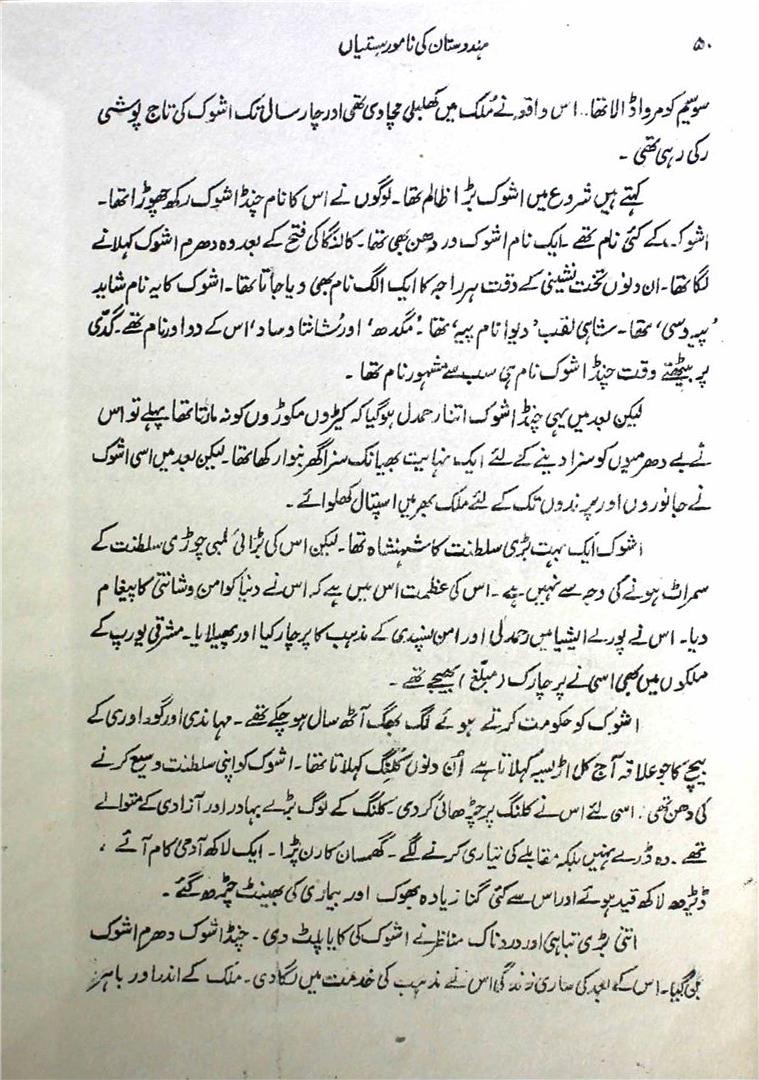 ۵۰
ہندوستان کی نامور ہستیاں
سویم کو مروا ڈالا تھا۔ اس واقعہ نے مُلک میں کھلبلی مچا دی تھی اور چار سال تک اشوک کی تاج پوشی
رکی رہی تھی ۔
کہتے ہیں شروع میں اشوک بڑا ظالم تھا۔ لوگوں نے اس کا نام چنڈا شوک رکھ چھوڑا تھا۔
اشوک کے کئی نام تھے ۔ ایک نام اشوک ور دھن بھی تھا۔ کالنگا کی فتح کے بعد وہ دھرم اشوک کہلانے
لگا تھا۔ ان دنوں تخت نشینی کے وقت ہر راجہ کا ایک الگ نام بھی دیا جاتا تھا۔ اشوک کا یہ نام شاید
’پیہ دسی‘ تھا۔ شاہی لقب ’دیوا نام پیہ‘ تھا ۔ ’مگدھ‘ اور ’شانتا و ساد‘ اس کے دو اور نام تھے۔ گدّی
پر بیٹھتے وقت چنڈا شوک نام ہی سب سے مشہور نام تھا ۔
لیکن بعد میں یہی چنڈا شوک اتنا رحمدل ہو گیا کہ کیڑوں مکوڑوں کو نہ مارتا تھا پہلے تو اس
نے بے دھرمیوں کو سزا دینے کے لئے ایک نہایت بھیانک سزا گھر بنوا رکھا تھا۔ لیکن بعد میں اسی اشوک
نے جانوروں اور پرندوں تک کے لئے ملک بھر میں اسپتال کھلوائے ۔
اشوک ایک بہت بڑی سلطنت کا شہنشاہ تھا۔ لیکن اس کی بڑائی لمبی چوڑی سلطنت کے
سمراٹ ہونے کی وجہ سے نہیں ہے ۔ اس کی عظمت اس میں ہے کہ اس نے دنیا کو امن و شانتی کا پیغام
دیا۔ اس نے پورے ایشیا میں رحمدلی اور امن پسندی کے مذہب کا پرچار کیا اور پھیلایا۔ مشرقی یورپ کے
ملکوں میں بھی اسی نے پرچارک (مبلّغ) بھیجے تھے ۔
اشوک کو حکومت کرتے ہوئے لگ بھگ آٹھ سال ہو چکے تھے۔ مہاندی اور گوداوری کے
بیچ کا جو علاقہ آج کل اڑیسہ کہلاتا ہے اُن دنوں کلنگ کہلاتا تھا۔ اشوک کو اپنی سلطنت وسیع کرنے
کی دھن تھی۔ اسی لئے اس نے کلنگ پر چڑھائی کر دی۔ کلنگ کے لوگ بڑے بہادر اور آزادی کے متوالے
تھے ۔ وہ ڈرے نہیں بلکہ مقابلے کی تیاری کرنے لگے ۔ گھمسان کا رن پڑا۔ ایک لاکھ آدمی کام آئے ،
ڈیڑھ لاکھ قید ہوئے اور اس سے کئی گنا زیادہ بھوک اور بیماری کی بھینٹ چڑھ گئے ۔
اتنی بڑی تباہی اور دردناک مناظر نے اشوک کی کایا پلٹ دی ۔ چنڈا شوک دھرم اشوک
بن گیا۔ اس کے بعد کی ساری زندگی اس نے مذہب کی خدمت میں لگا دی۔ ملک کے اندر اور باہر